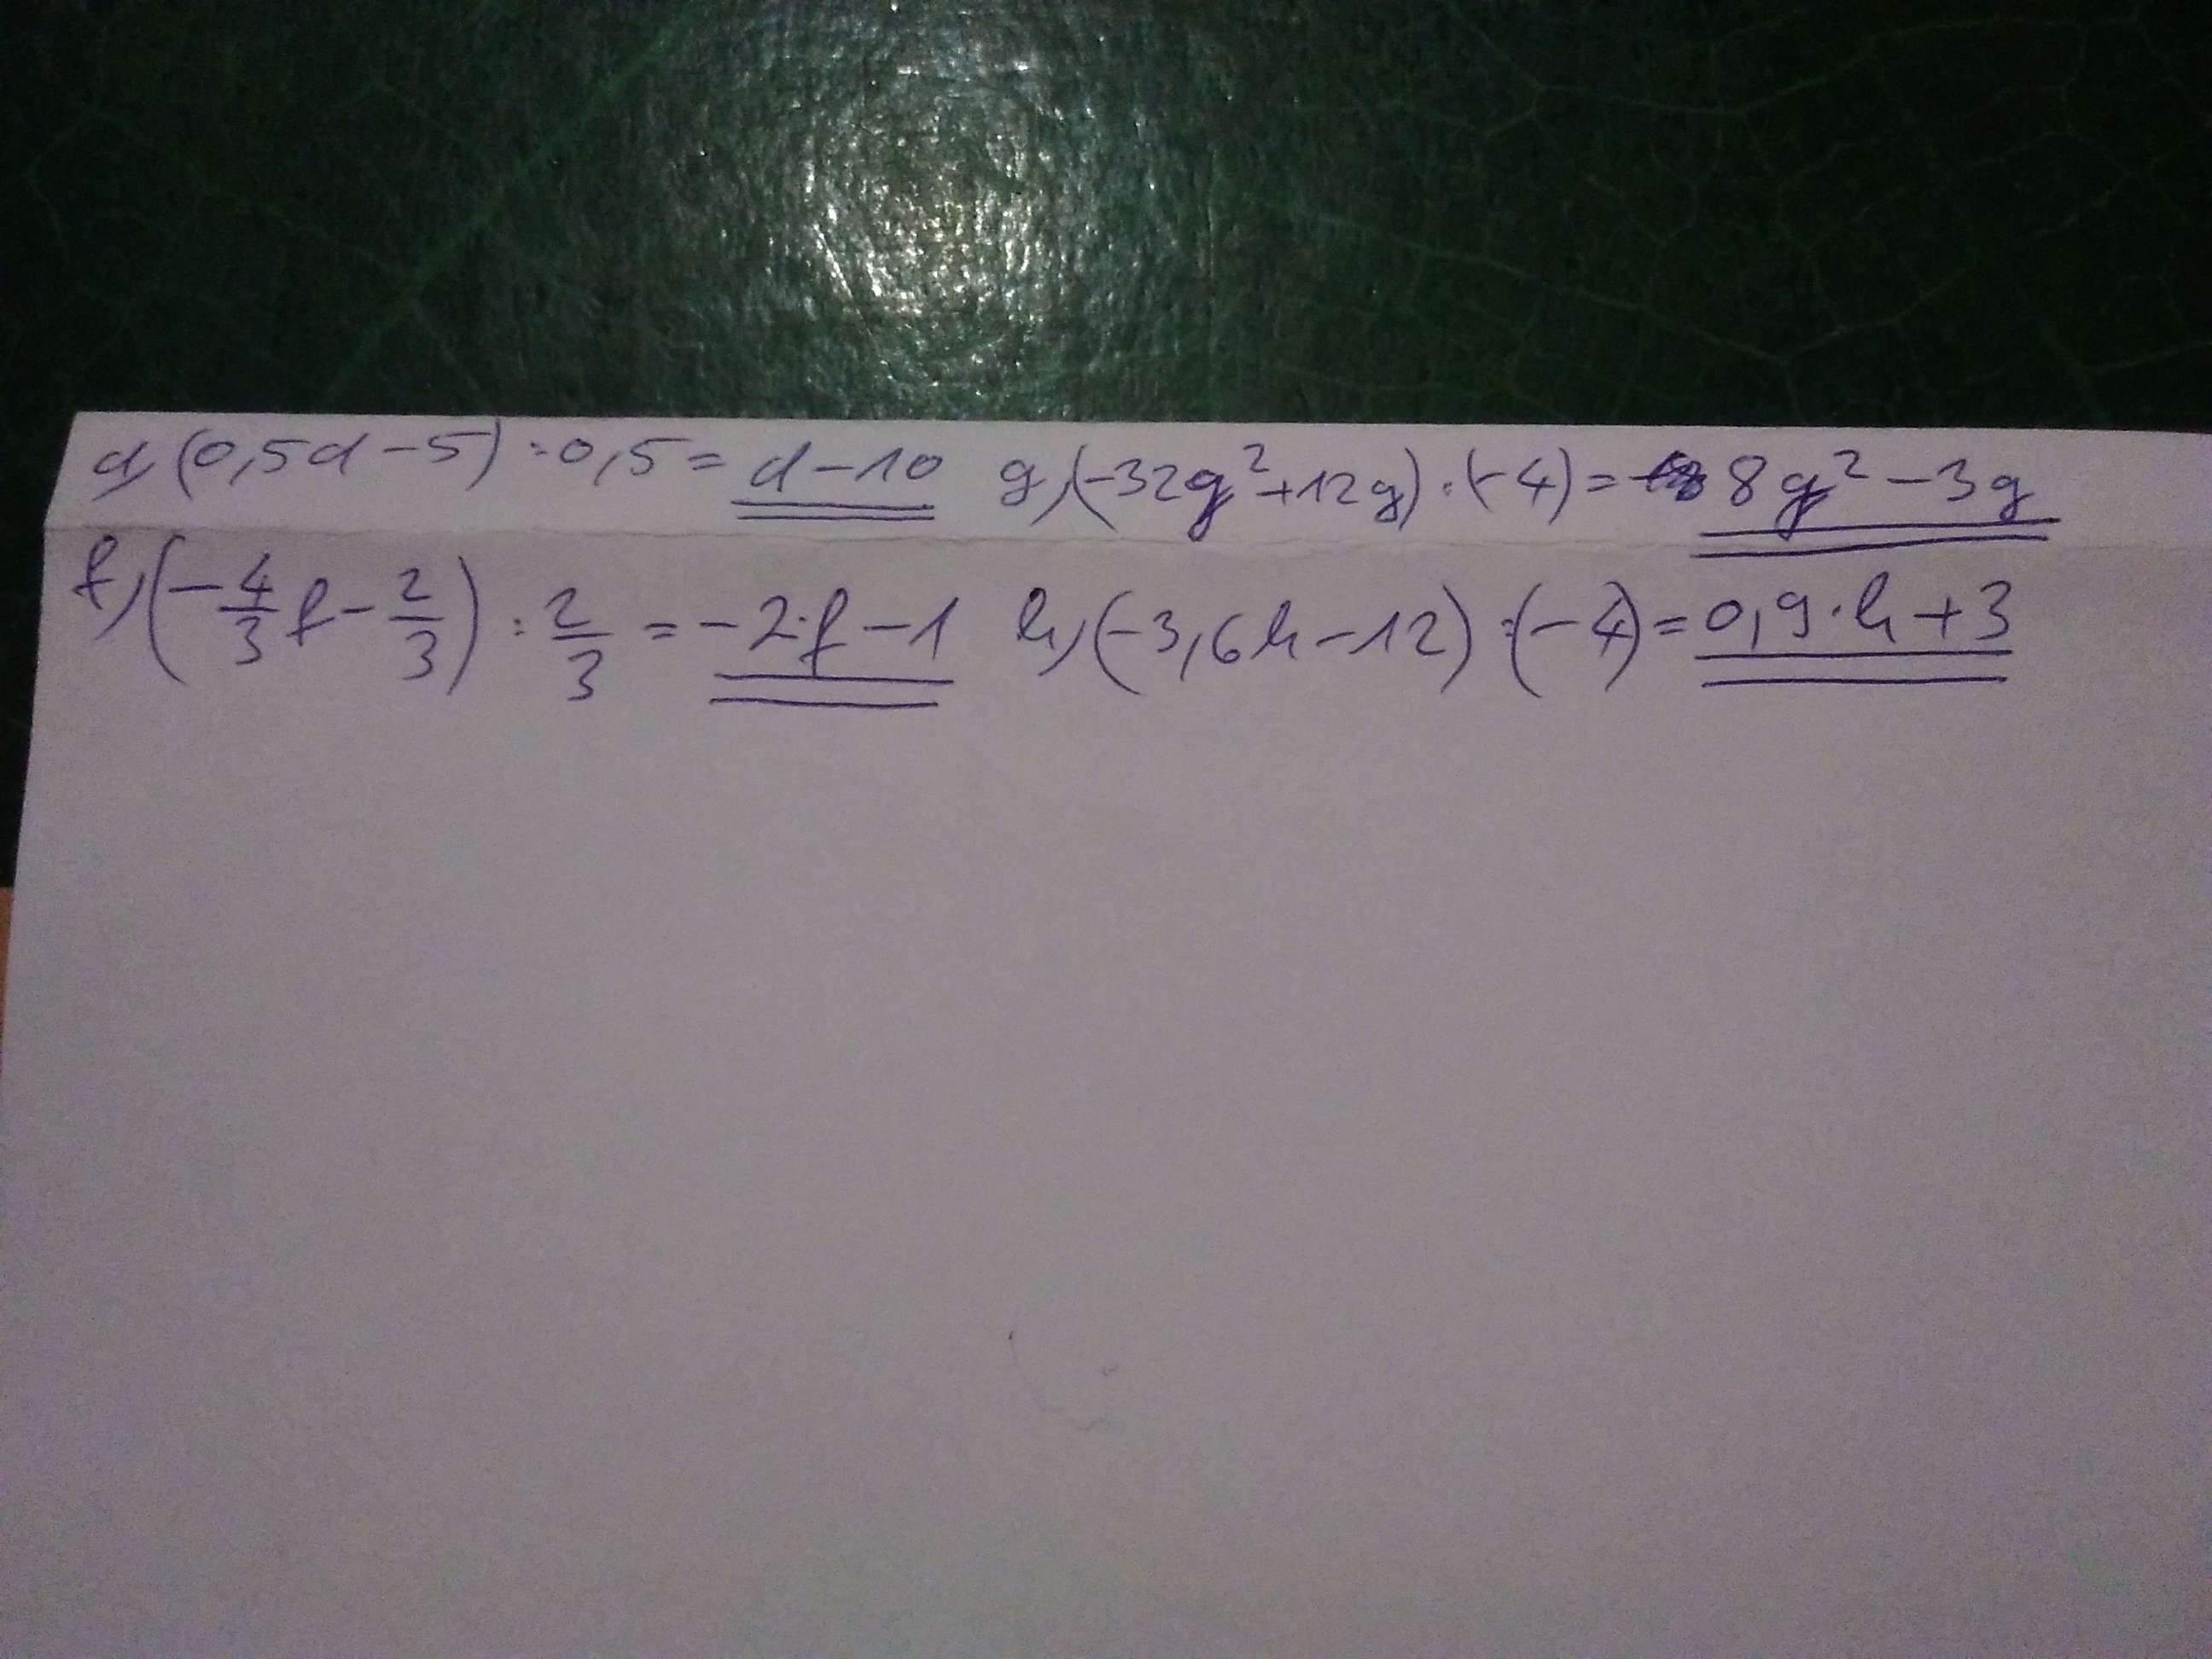 d, (0,5d-5):0,5= d-10 g, (-32g²+12g):(-4)= 8g²-3g
f, (-4/3 f - 2/3) : 2/3 = -2·f-1 h, (-3,6h-12):(-4)= 0,9·h+3